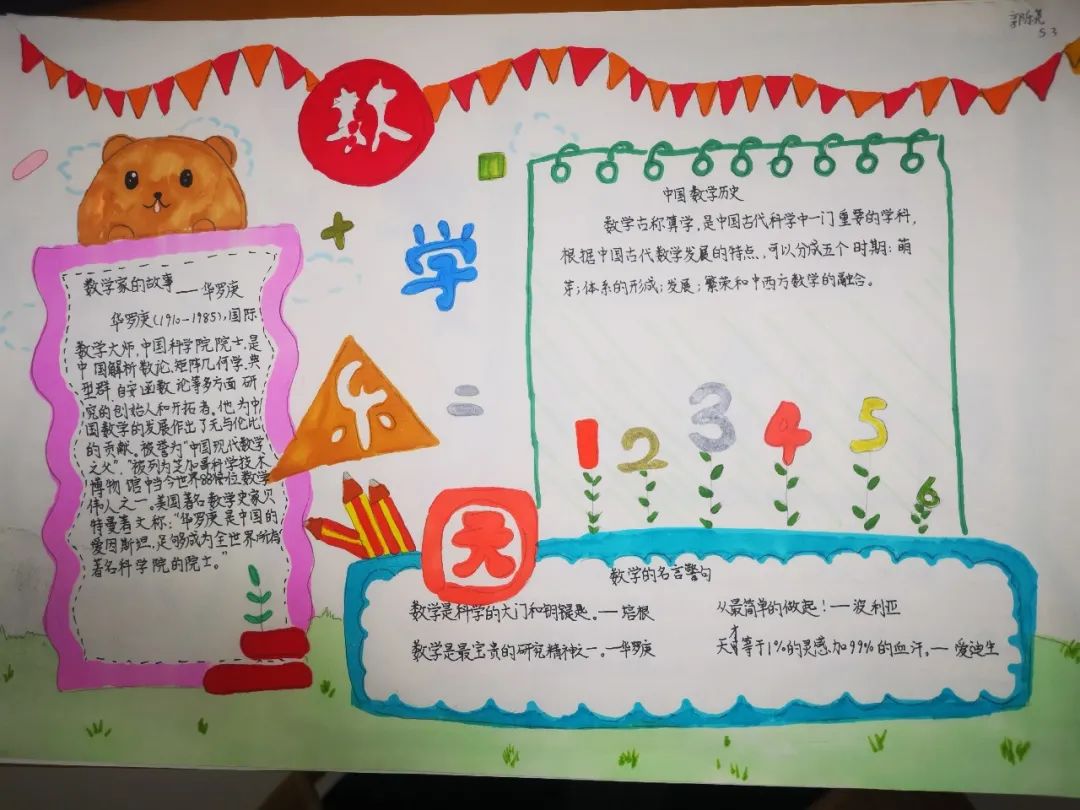 53
数
学
乐
园
数学家的故事——华罗庚
华罗庚(1910-1985),国际
数学大师,中国科学院院士,是
中国解析数论、矩阵几何学、典
型群、自安函数论等多方面研
究的创始人和开拓者。他为中
国数学的发展作出了无与伦比
的贡献。被誉为“中国现代数学
之父”,“被列为芝加哥科学技术
博物馆中当今世界88位数学
伟人之一。美国著名数学史家贝
特曼著文称:“华罗庚是中国的
爱因斯坦,足够成为全世界所有
著名科学院的院士。”
中国数学历史
数学古称算学,是中国古代科学中一门重要的学科,
根据中国古代数学发展的特点,可以分成五个时期:萌
芽;体系的形成;发展;繁荣和中西方数学的融合。
1 2 3 4 5 6
数学的名言警句
数学是科学的大门和钥匙。——培根
数学是最宝贵的研究精神之一。——华罗庚
从最简单的做起!——波利亚
天才等于1%的灵感加99%的血汗。——爱迪生